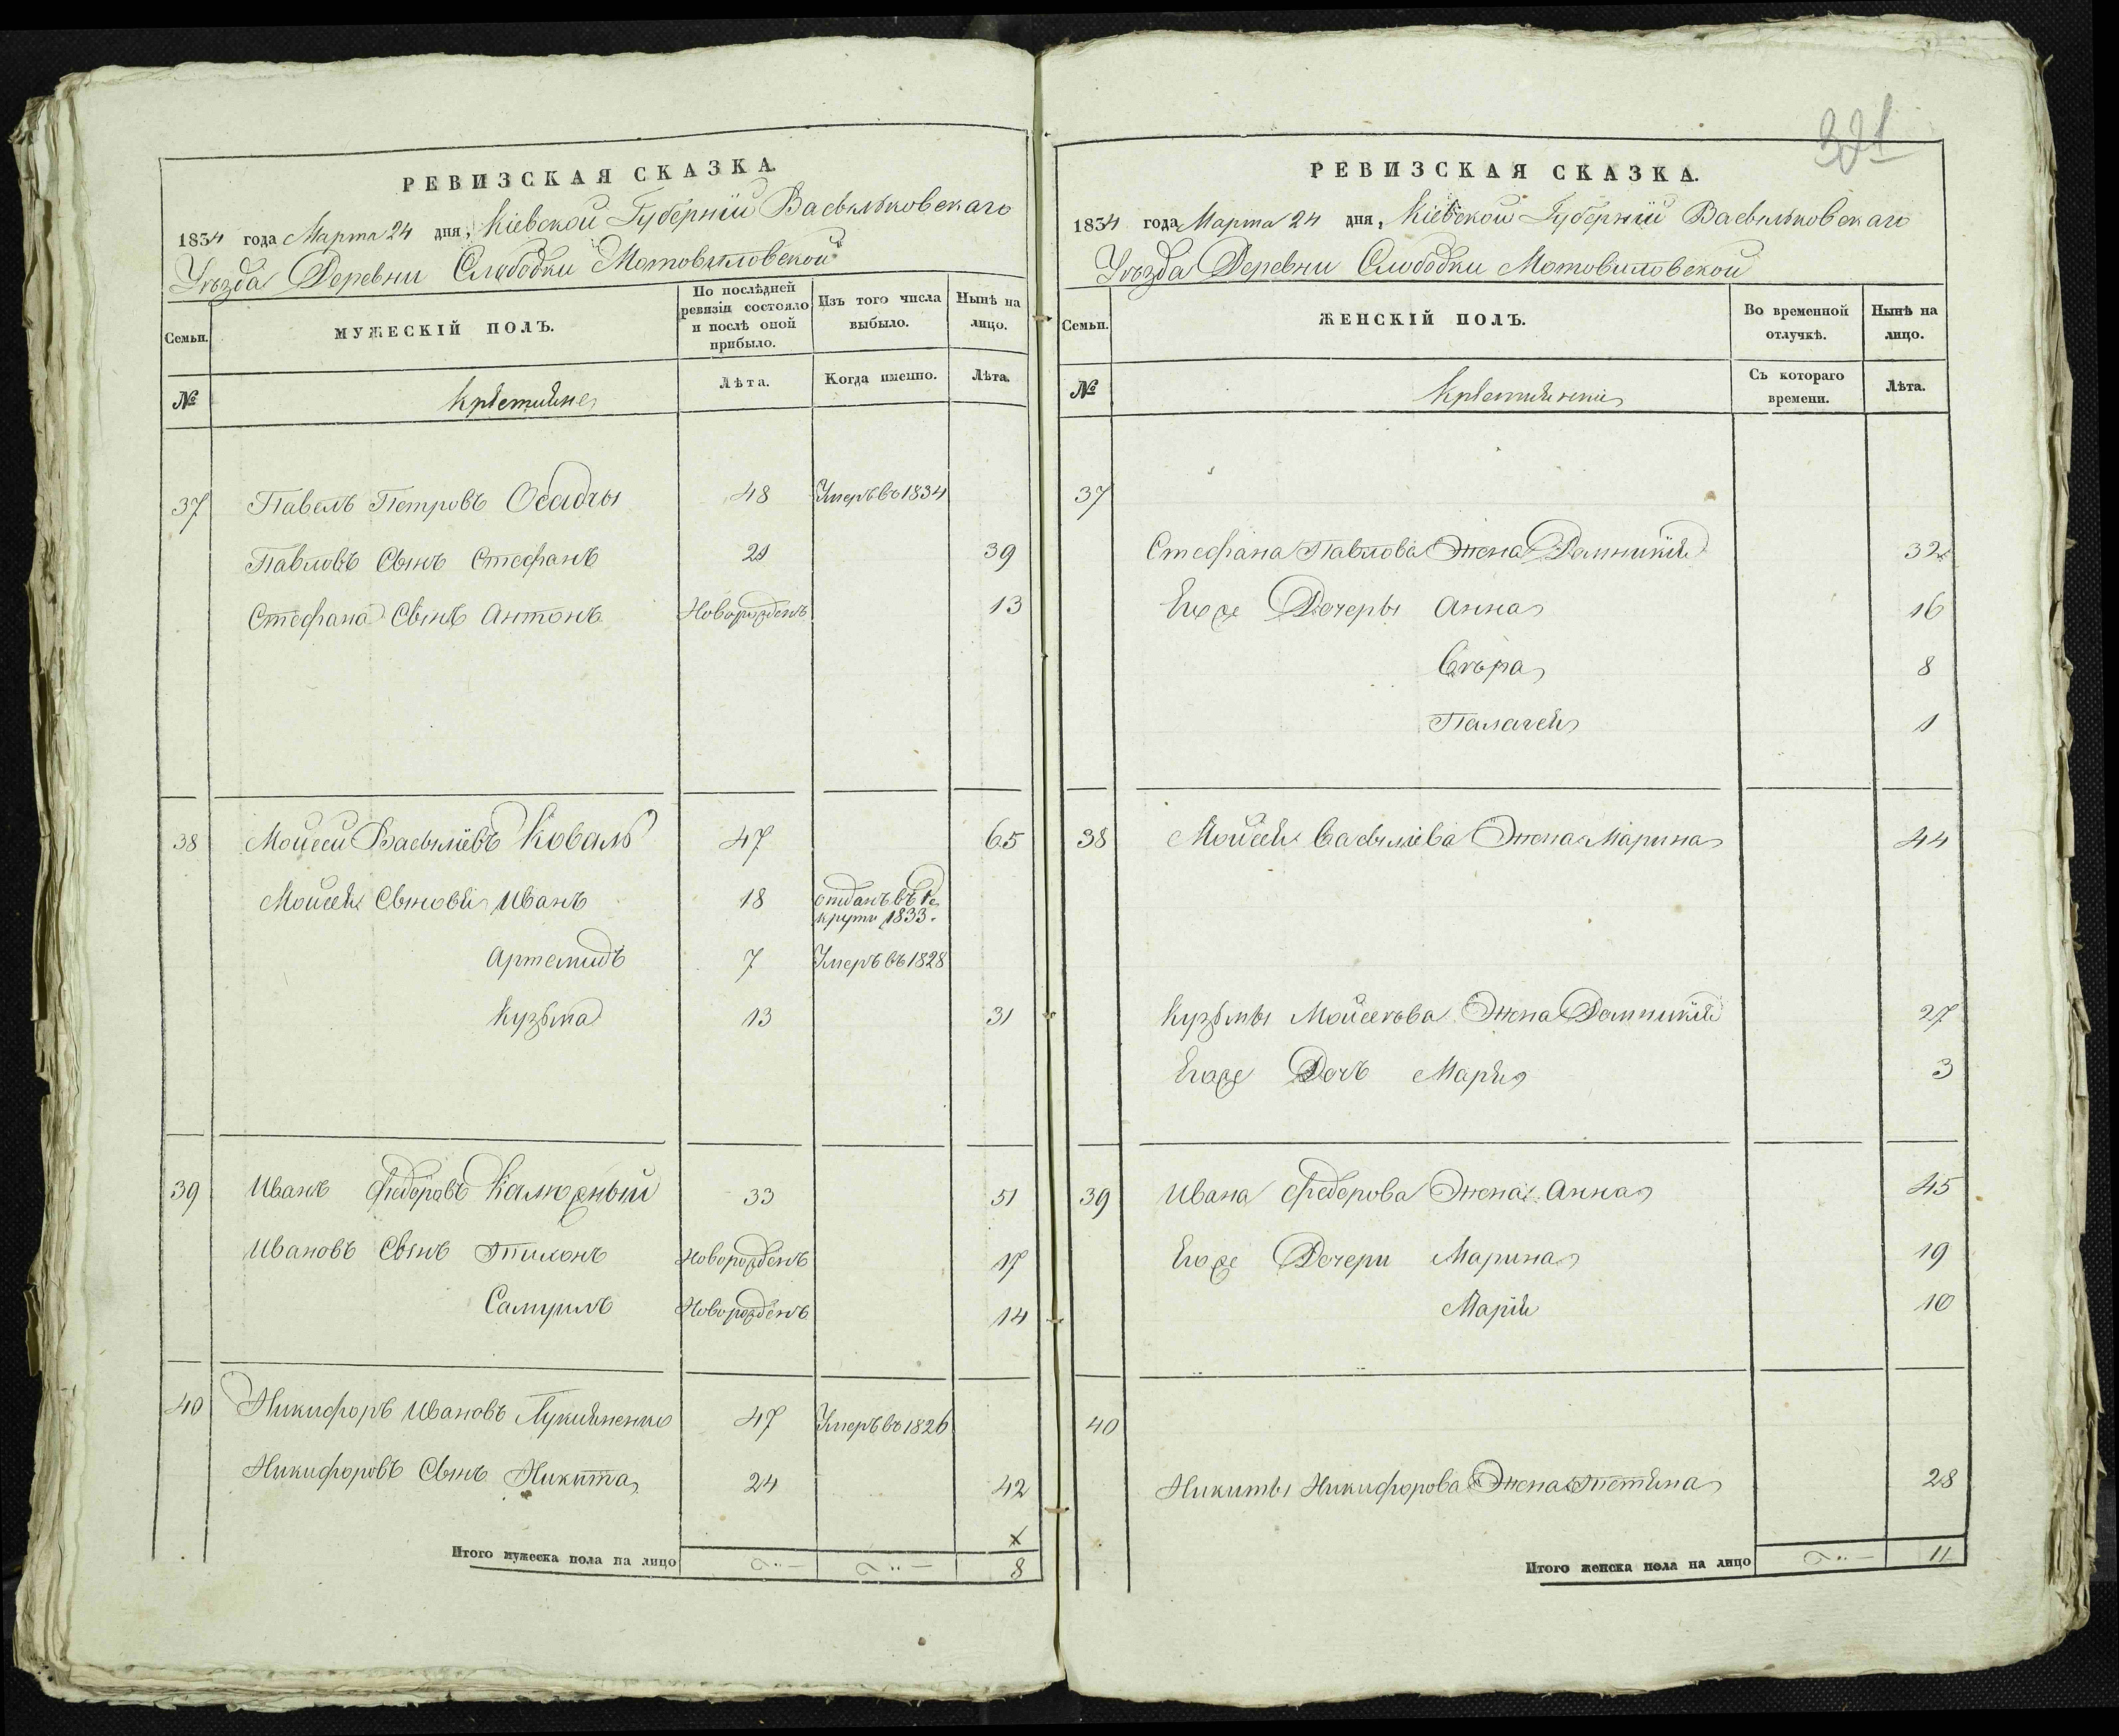 321
РЕВИЗСКАЯ СКАЗКА.
1834 года Марта 24 дня, Кіевской Губерніи Васыльковскаго
Уѣзда Деревни Слободки Мотовыловской
Семьи.
МУЖЕСКІЙ ПОЛЪ.
По послѣдней
ревизіи состояло
и послѣ оной
прибыло.
Изъ того числа
выбыло.
Нынѣ на
лицо.
№
Лѣта.
Когда именно.
Лѣта.
37 Павелъ Петровъ Осадчы 48 Умеръ въ 1834
Павловъ Сынъ Стефанъ 21 39
Стефана Сынъ Антонъ Новорожденъ 13
38 Мойсей Васылiевъ Коваль 47 65
Мойсея Сыновя Иванъ 18 отданъ въ Ре
круты 1833.
Артемидъ 7 Умеръ въ 1828
Кузьма 13 31
39 Иванъ Федоровъ Калюжный 33 51
Ивановъ Сынъ Тихонъ Новорожденъ 17
Самуилъ Новорожденъ 14
40 Никифоръ Ивановъ Лукяненко 47 Умеръ въ 1826
Никифоровъ Сынъ Никита 24 42
х
Итого мужеска пола на лицо 8
РЕВИЗСКАЯ СКАЗКА.
1834 года Марта 24 дня, Кіевской Губерніи Васыльковскаго
Уѣзда Деревни Слободки Мотовиловской
Семьи.
ЖЕНСКІЙ ПОЛЪ.
Во временной
отлучкѣ.
Нынѣ на
лицо.
№
Съ котораго
времени.
Лѣта.
37
Стефана Павлова Жена Домникія 32
Егоже Дочеры Анна 16
Вѣра 8
Палагея 1
38 Мойсея Васылiева Жена Марина 44
Кузьмы Мойсеева Жена Домникія 27
Егоже Дочь Марія 3
39 Ивана Федорова Жена Анна 45
Егоже Дочери Марина 19
Марія 10
40
Никиты Никифорова Жена Тетяна 28
Итого женска пола на лицо 11